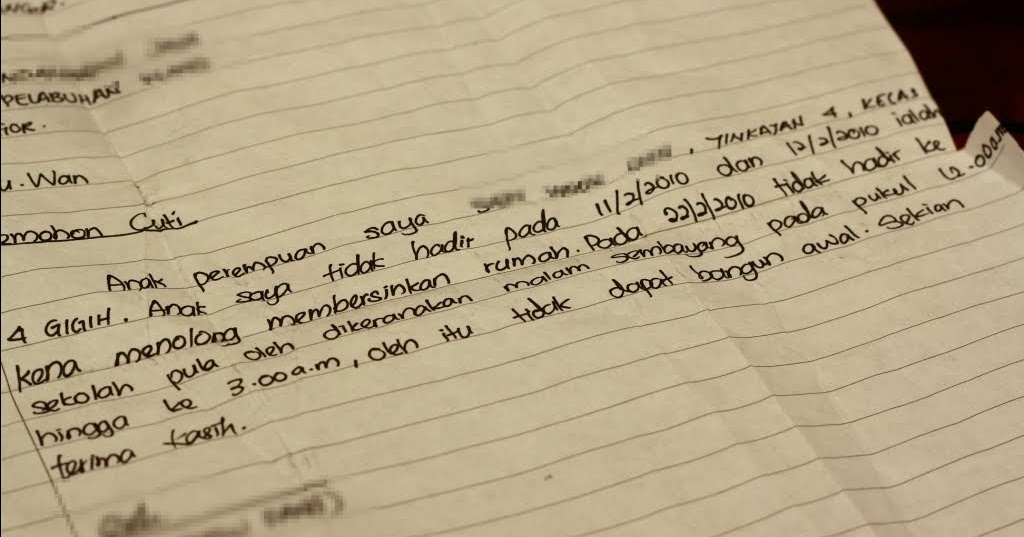 PELABUHAN
IOR.
u. Wan
emohon Cuti
Anak perempuan saya , TINKATAN 4, KECAS
4 GIGIH. Anak saya tidak hadir pada 11/2/2010 dan 12/2/2010 ialah
kena menolong membersinkan rumah. Pada 22/2/2010 tidak hadir ke
sekolah pula oleh dikeranakan malam sembayang pada pukul 12.00a.m
hingga ke 3.00a.m, oleh itu tidak dapat bangun awal. Sekian
terima kasih.